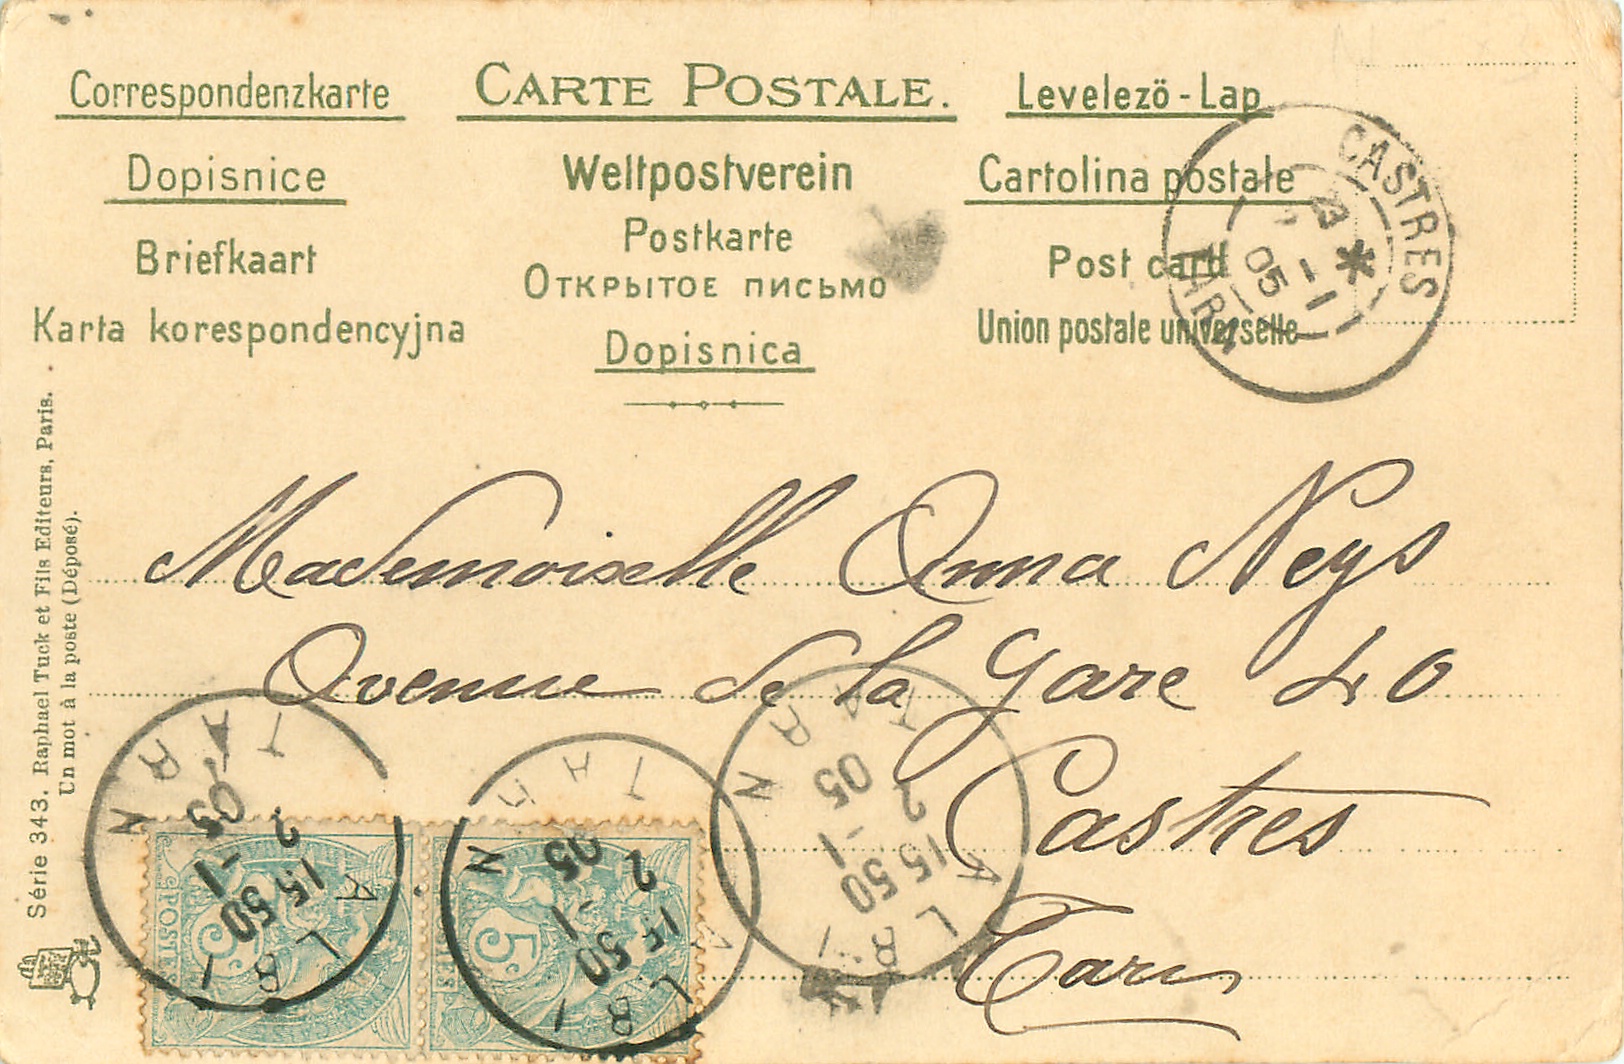 Correspondenzkarte
Dopisnice
Briefkaart
Karta korespondencyjna
CARTE POSTALE.
Weltpostverein
Postkarte
ОТКРЫТОЕ ПИСЬМО
Dopisnica
Levelezö-Lap
Cartolina postale
Post card
Union postale universelle
CASTRES
2 -1
05
TARN
Série 343. Raphael Tuck et Fils Editeurs, Paris.
Un mot à la poste (Déposé).
Mademoiselle Anna Neys
Avenue de la Gare 40
Castres
Tarn
ALBI
15 50
2 -1
05
TARN
ALBI
15 50
2 -1
05
TARN
ALBI
15 50
2 -1
05
TARN
5c
POSTES
5c